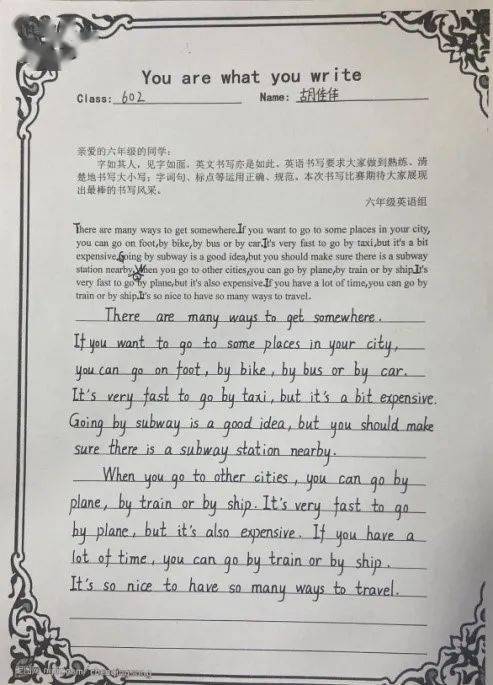 You are what you write
Class: 602 Name: 胡佳佳
亲爱的六年级的同学：
字如其人，见字如面。英文书写亦是如此。英语书写要求大家做到熟练、清
楚地书写大小写；字词句、标点等运用正确、规范。本次书写比赛期待大家展现
出最棒的书写风采。
六年级英语组
There are many ways to get somewhere.If you want to go to some places in your city,
you can go on foot,by bike,by bus or by car.It's very fast to go by taxi,but it's a bit
expensive.Going by subway is a good idea,but you should make sure there is a subway
station nearby.When you go to other cities,you can go by plane,by train or by ship.It's
very fast to go by plane,but it's also expensive.If you have a lot of time,you can go by
train or by ship.It's so nice to have so many ways to travel.
There are many ways to get somewhere.
If you want to go to some places in your city,
you can go on foot, by bike, by bus or by car.
It's very fast to go by taxi, but it's a bit expensive.
Going by subway is a good idea, but you should make
sure there is a subway station nearby.
When you go to other cities, you can go by
plane, by train or by ship. It's very fast to go
by plane, but it's also expensive. If you have a
lot of time, you can go by train or by ship.
It's so nice to have so many ways to travel.